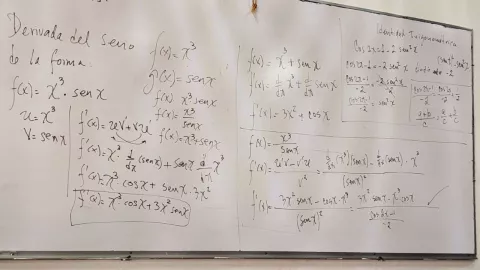 Derivada del Seno
de la forma:
f(x) = x³ · sen x
u = x³
v = sen x
f'(x) = uv' + vu'
f'(x) = x³ · d/dx (sen x) + sen x · d/dx x³
f'(x) = x³ · cos x + sen x · 3x²
f'(x) = x³ cos x + 3x² sen x
f(x) = x³
g(x) = sen x
f(x) x³ sen x
f(x) = x³/sen x
f(x) = x³ + sen x
f(x) = x³ + sen x
f'(x) = d/dx x³ + d/dx sen x
f'(x) = 3x² + cos x
f(x) = x³/sen x
f'(x) = u'v - v'u / v² = d/dx (x³) sen x - d/dx (sen x) · x³ / (sen x)²
f'(x) = 3x² sen x - cos x · x³ / (sen x)² = 3x² sen x - x³ cos x / cos 2x - 1 / -2
Identidad Trigonometrica
Cos 2x = 1 - 2 sen² x
cos 2x - 1 = -2 sen² x
cos 2x - 1 / -2 = -2 sen² x / -2
cos 2x - 1 / -2 = sen² x
entre -2
a+b/c = a/c + b/c